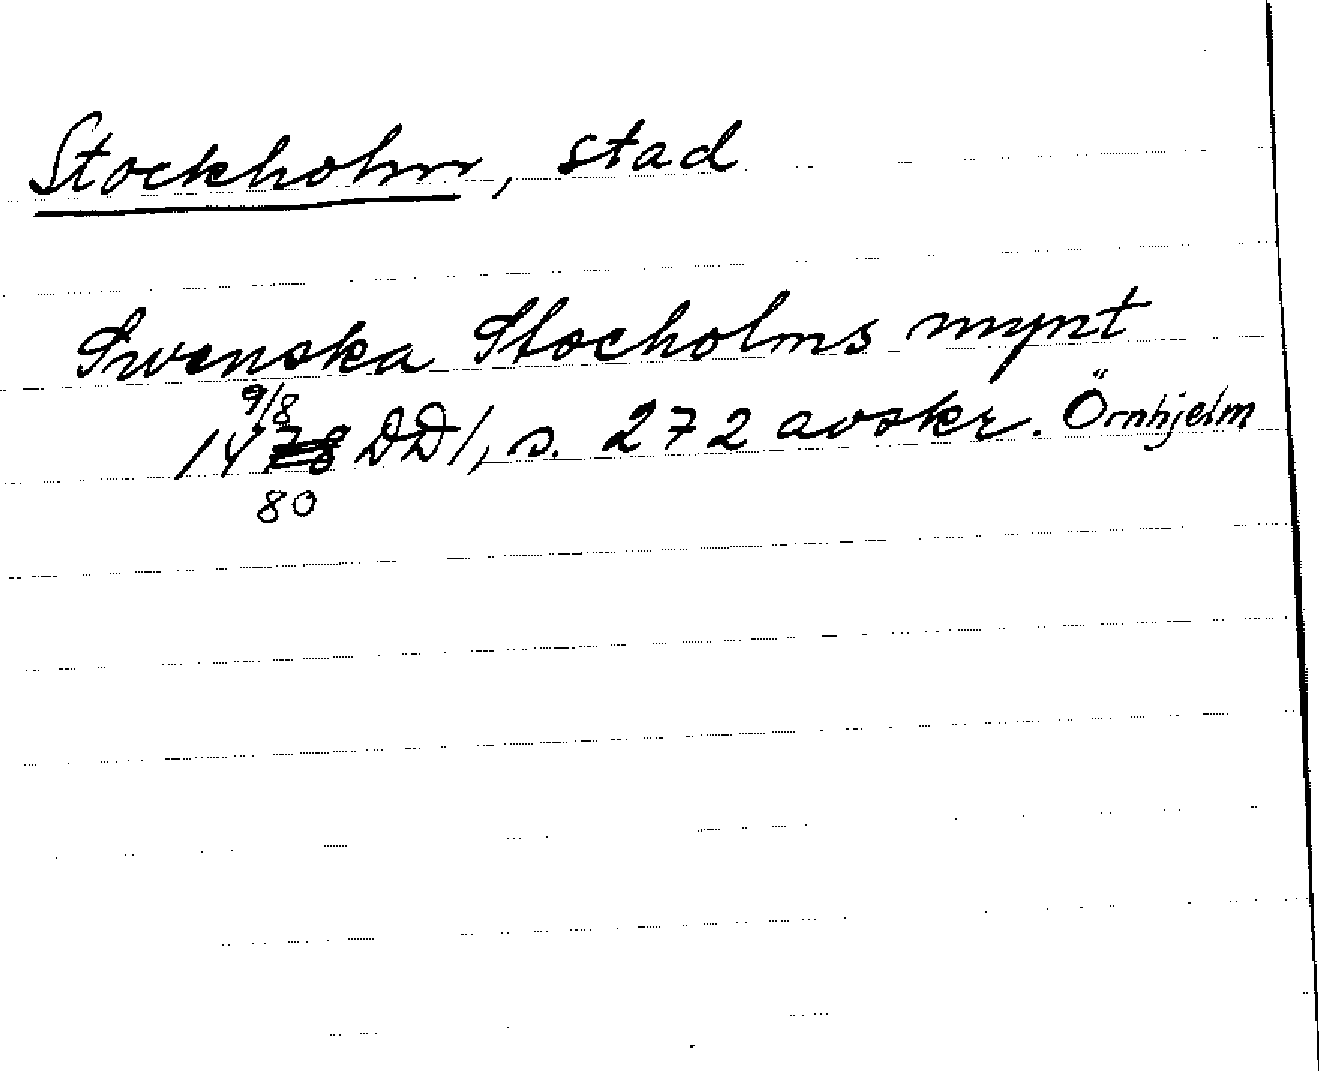 Stockholm, stad
Swenska Stocholms mynt
9/8
1478 DD 1, s. 272 avskr. Örnhjelm
80